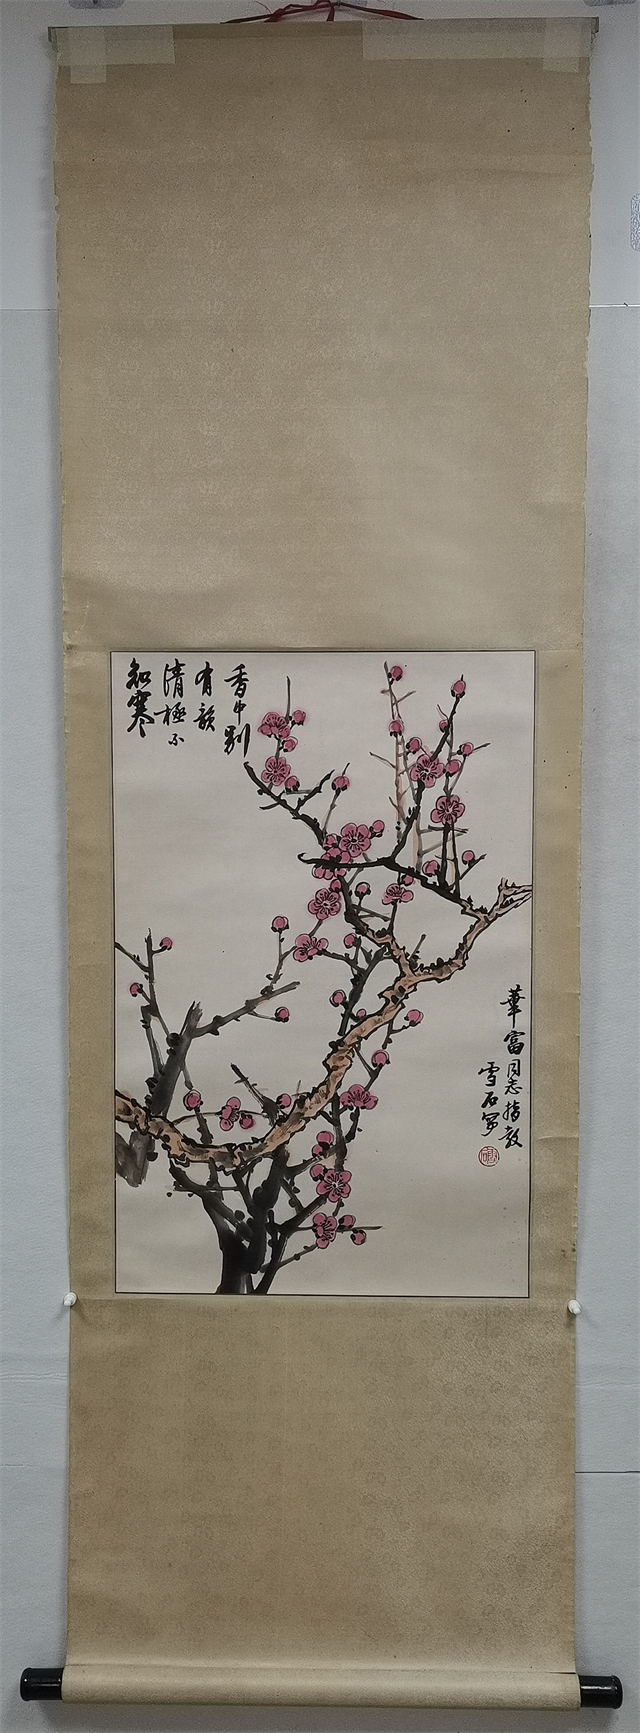 香中別
有韻
清極不
知寒
華富同志指教
雪石写